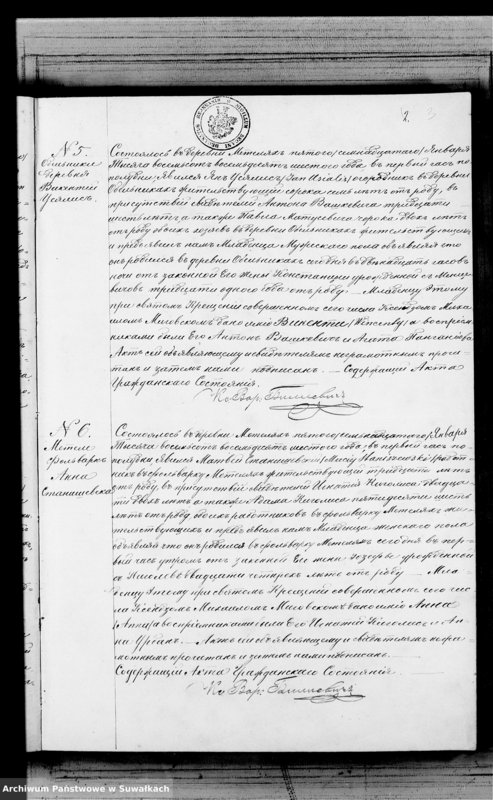 2.
N 5.
Обельники
Деревня
Викентий
Состоялось въ деревни Метеляхъ пятого /семнадцатого/ Января
Тысяча восемьсотъ восемьдесятъ шестого года въ первый часъ по
полудни явился Янъ /Jan/ огородникъ въ деревни
Обельникахъ жительствующій сорока семь лѣтъ отъ роду, въ
присутствіи свидѣтелей Антона Вашкевича тридцати
шесть лѣтъ, а также Матусевича сорока двухъ лѣтъ
отъ роду обоихъ хозяевъ въ деревни Обельникахъ жительствующихъ
и предъявилъ намъ Младенца Мужескаго пола объявляя что
онъ родился въ деревни Обельникахъ сего дня въ двенадцать часовъ
ночи отъ законной Его жены Констанціи урожденной съ
тридцати одного года отъ роду. Младенцу Этому
при святомъ Крещеніи совершенномъ сего числа Ксендзомъ Миха
иломъ Миговскомъ дано имя Викентій /Wincenty/ а воспрем
никами были Его Антонъ Вашкевичъ и Агата
Актъ сей объявляющему и свидѣтелямъ неграмотнымъ прочи
танъ и затѣмъ нами подписанъ. Содержащій Акта
Гражданскаго Состоянія.
N 6.
Метеле
Фольваркъ
Анна
Станашевска
Состоялось въ деревни Метеляхъ пятого /семнадцатого/ Января
Тысяча восемьсотъ восемьдесятъ шестого года, въ первый часъ по
полудни явился Матвей Станашевски
въ фольварку Метеляхъ жительствующій тридцати лѣтъ
отъ роду, въ присутствіи свидѣтелей Игнатія двадца
ти двухъ лѣтъ а также Адама пятидесяти шесть
лѣтъ отъ роду, обоихъ работниковъ въ фольварку Метеляхъ жи
тельствующихъ и предъявилъ намъ Младенца женскаго пола
объявляя что онъ родился въ фольварку Метеляхъ сегодня въ пер
вый часъ утромъ отъ законной Его жены урожденной
двадцати четырехъ лѣтъ отъ роду Мла
денцу Этому при святомъ Крещеніи совершенномъ сего чис
ла Ксендзомъ Михаиломъ Миговскомъ дано имя Анна
/Anna/ а воспріемниками были Его Игнатій и Ан
на Урбанъ. Актъ сей объявляющему и свидѣтелямъ негра
мотнымъ прочитанъ и затѣмъ нами подписанъ.
Содержащій Акта Гражданскаго Состоянія.
Archiwum Państwowe w Suwałkach